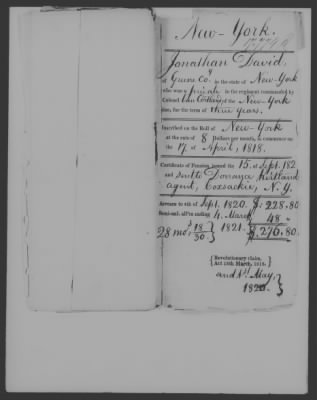 New-York.
17,740
Jonathan David
of Greene Coy in the state of New-York
who was a private in the regiment commanded by
Colonel Van Cortland of the New-York
line, for the term of three years.
Inscribed on the Roll of New-York
at the rate of 8 Dollars per month, to commence on
the 17 of April, 1818.
Certificate of Pension issued the 15 of Sept. 182
and sent to Dorrance Kirtland
agent, Coxsackie, N.Y.
Arrears to 4th of Sept. 1820. $.228.80
Semi-anl. all'ce ending 4. March 48 "
28 mos 18/30 } 1821. $.276.80
{ Revolutionary claim,
Act 18th March, 1818. }
and 1st May,
1820. }